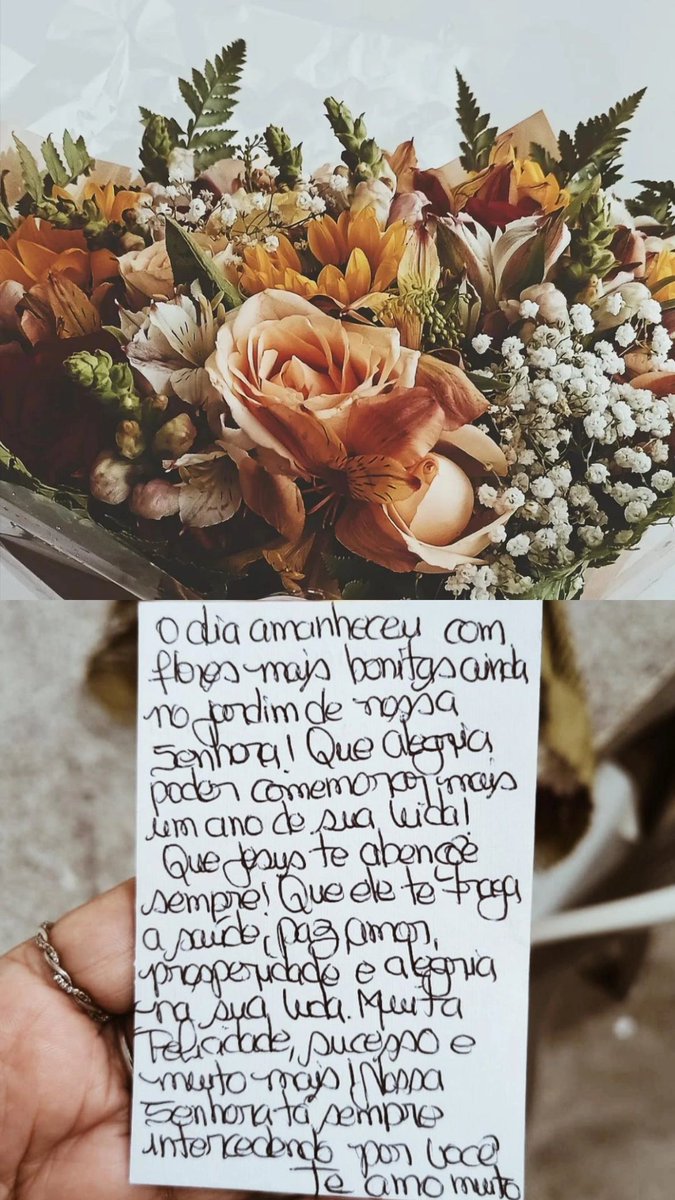 O dia amanheceu com
flores mais bonitas ainda
no jardim de nossa
Senhora! Que alegria
poder comemorar mais
um ano de sua vida!
Que Jesus te abençõe
sempre! Que ele te traga
a saúde, paz, amor,
prosperidade e alegria
na sua vida. Muita
Felicidade, sucesso e
muito mais! Nossa
Senhora tá sempre
intercedendo por você
Te amo muito